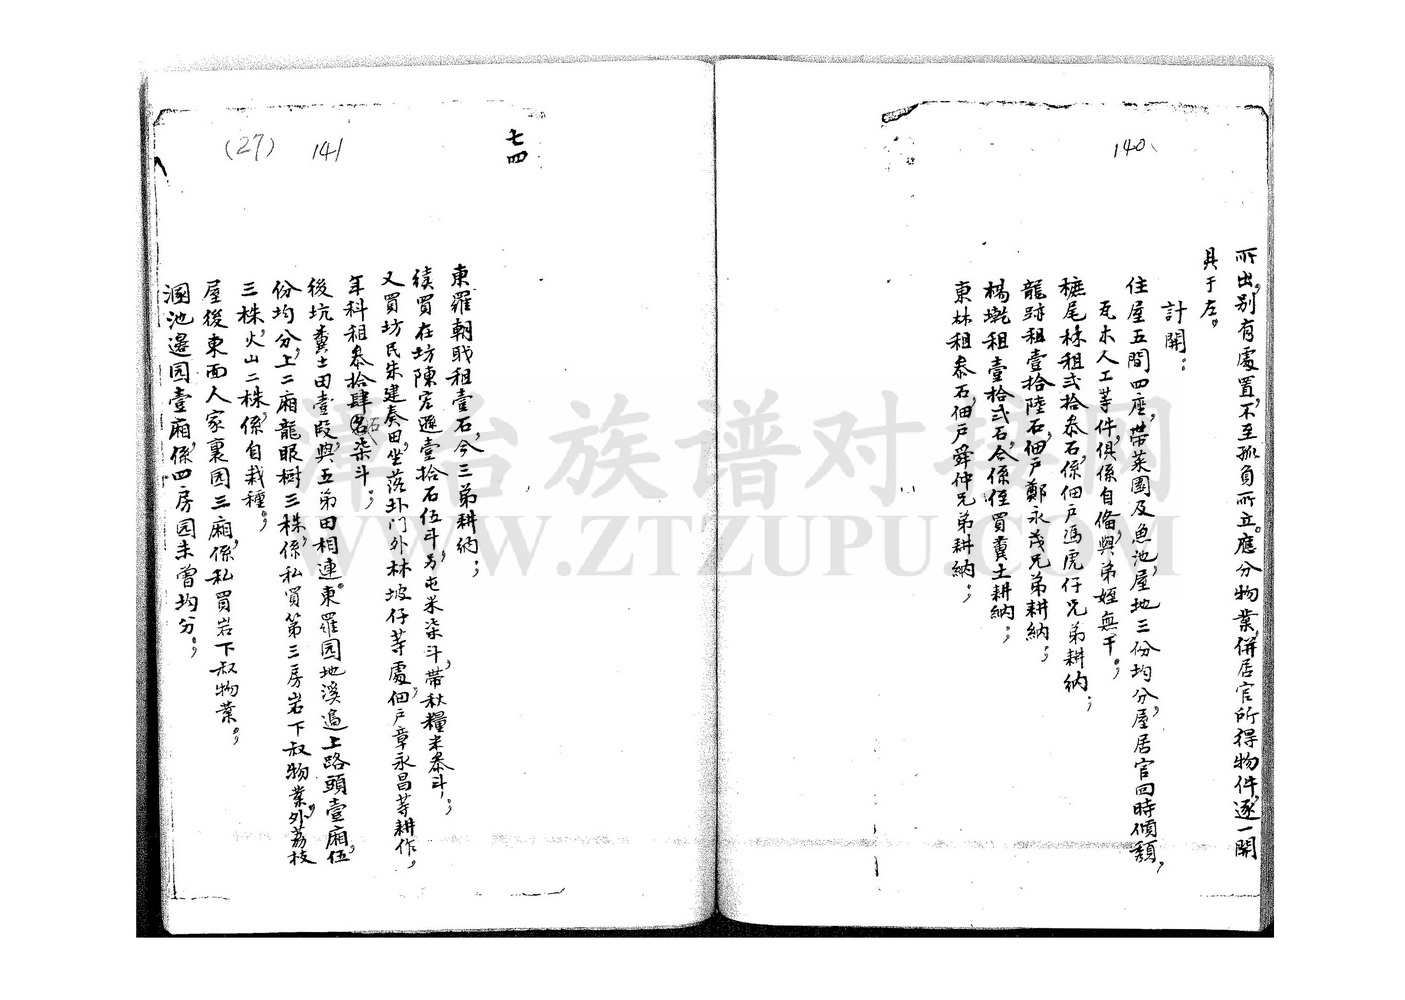 140
所出，别有處置，不至孤負而立。應分物業，併居官所得物件，逐一開
具于左。
計開：
住屋五間四座，帶菜園及魚池，屋地三份均分，屋居官回時傾頹，
瓦木人工等件，俱係自偹，與弟姪無干。；
樜尾林租弍拾叁石，係佃户馮虎仔兄弟耕納；
龍跡租壹拾陸石，佃户鄭永茂兄弟耕納；
楊墘租壹拾弍石，今係侄買糞土耕納；
東林租叁石，佃户舜仲兄弟耕納；
(27) 141
七四
東羅朝㽵租壹石，今三弟耕納；
續買在坊陳宏遜壹拾石伍斗，另屯米柒斗，帶秋糧米叁斗；
又買坊民朱建奏田，坐落圤门外林坡仔等處，佃户章永昌等耕作，
年科租叁拾肆石柒斗；
後坑糞土田壹段，與五弟田相連。東羅园地溪邉上路頭壹廂，伍
份均分，上二廂龍眼樹三株，係私買第三房岩下叔物業，外荔枝
三株，火山二株，係自栽種。；
屋後東面人家裏园三廂，係私買岩下叔物業。；
溷池邊园壹廂，係四房园未曾均分。；
漳台族谱对接网
WWW.ZTZUPU.COM